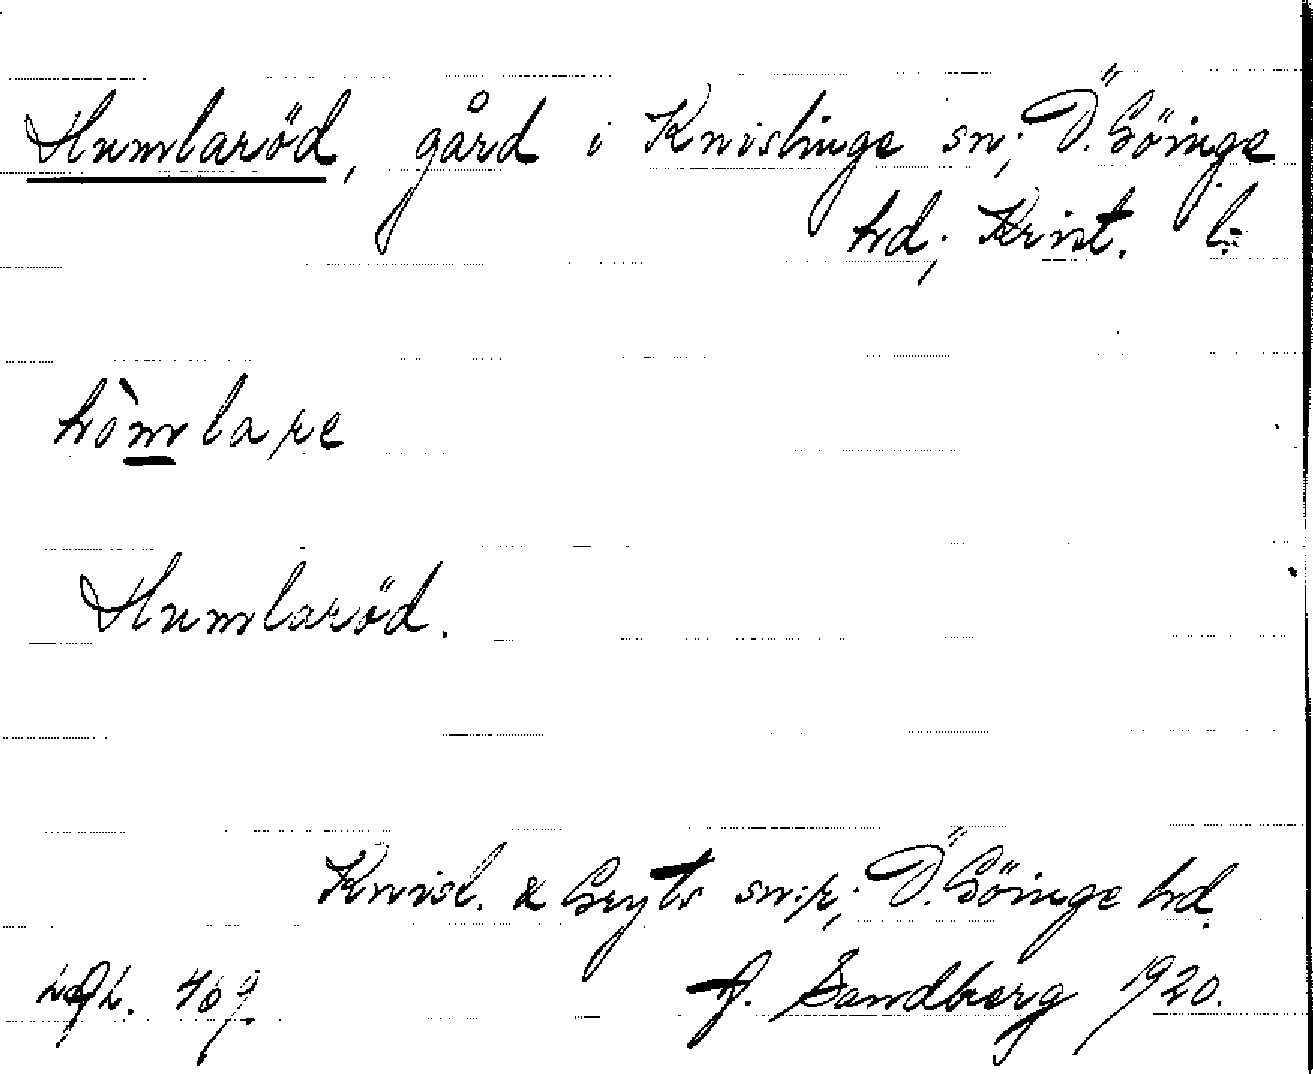 Humlaröd, gård i Knislinge sn; Ö. Göinge
hd; Krist. l:
hòmlare
Humlaröd.
Knisl. & Gryts sn:r; Ö. Göinge hd.
469. A. Sandberg 1920.